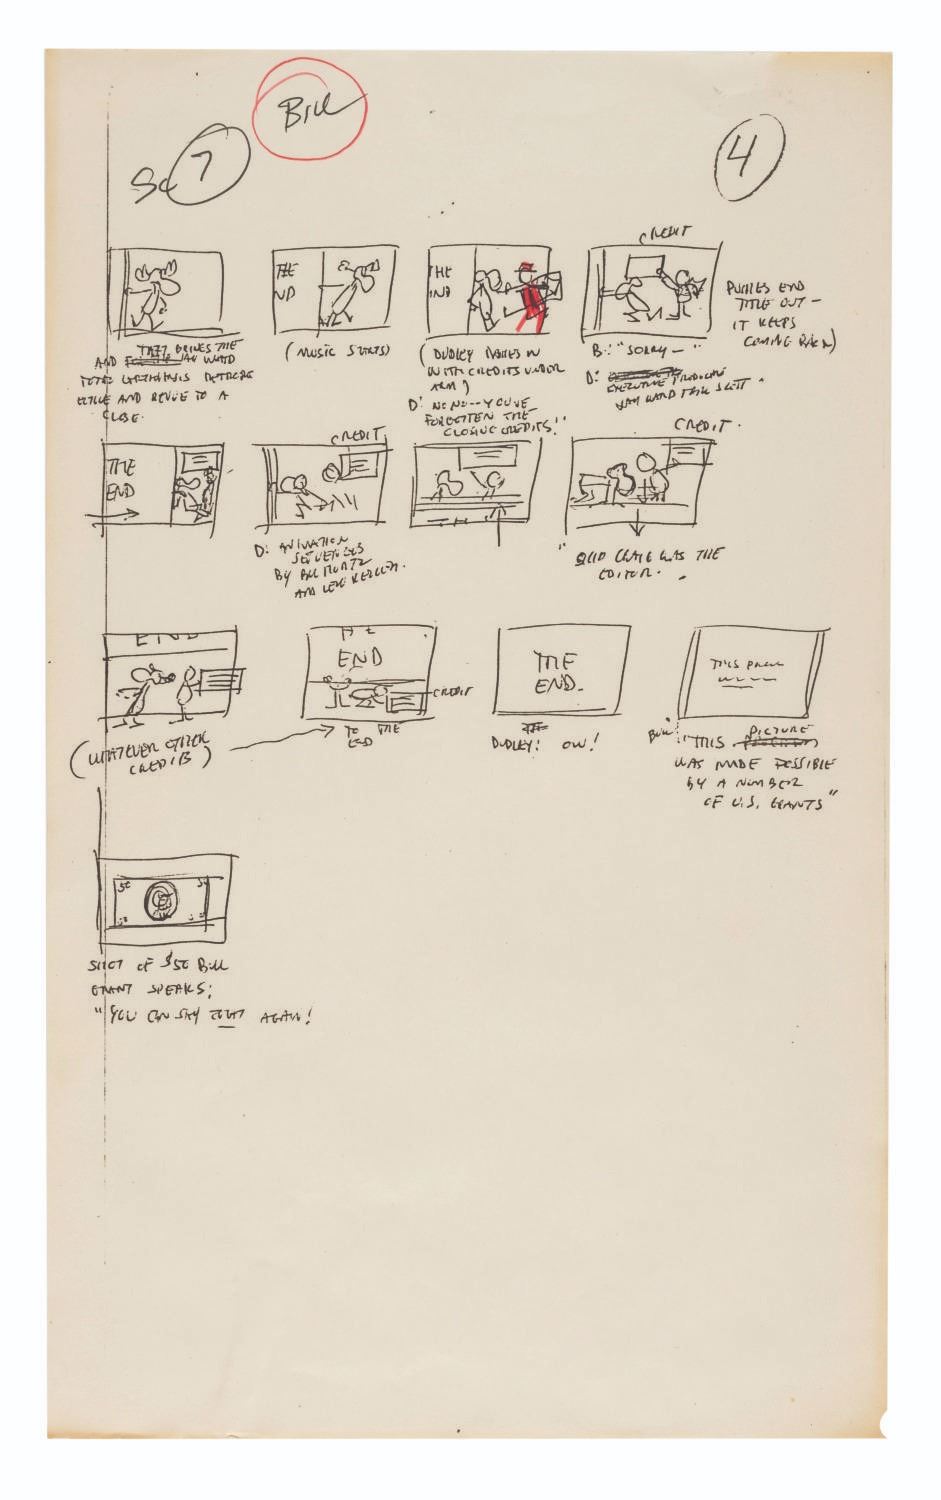 Bill
Sc 7
4
CREDIT
THE
ND
THE
IND
THAT BRINGS THE
AND
CLOSE AND REVUE TO A
CLOSE.
(MUSIC STARTS)
(DUDLEY COMES IN
WITH CREDITS UNDER
ARM)
D: NO NO -- YOU'VE
FORGOTTEN THE
CLOSING CREDITS!
B: "SORRY — "
D:
EXECUTIVE PRODUCER
WAY WARD
PUSHES END
TITLE OUT —
IT KEEPS
COMING BACK)
THE
END
CREDIT
CREDIT.
D: ANIMATION
SEQUENCES
BY BILL HURTZ
AND LEW KELLER.
" SKIP CRAIG WAS THE
EDITOR.
END
(WHATEVER OTHER
CREDITS)
END
CREDIT
TO THE
END
THE
END.
DUDLEY: OW!
THIS
BULL: "THIS PICTURE
WAS MADE POSSIBLE
BY A NUMBER
OF U.S. GRANTS"
50 50
SHOT OF $50 BILL
GRANT SPEAKS:
"YOU CAN SAY THAT AGAIN!